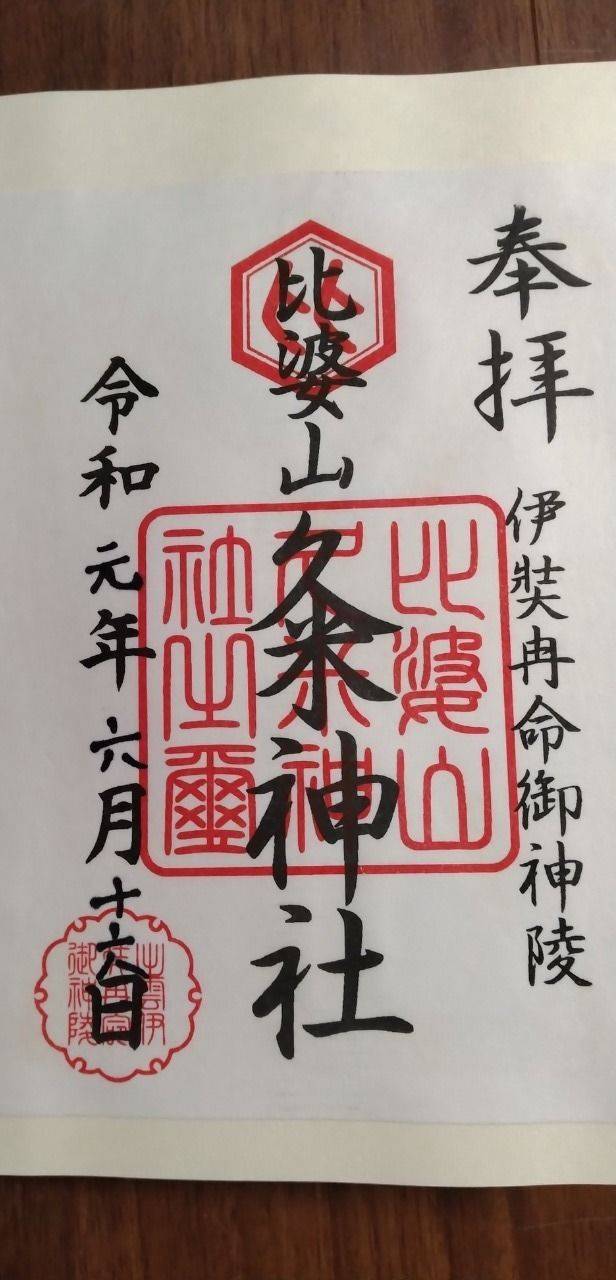 奉拝
伊奘冉命御神陵
比婆山久米神社
比婆山
久米神
社之璽
令和元年六月十六日
出雲伊
御神陵